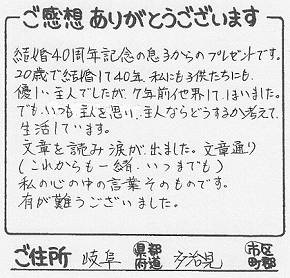 ご感想 ありがとうございます
結婚40周年記念の息子からのプレゼントです。
20歳で結婚して40年、私にも子供たちにも
優しい主人でしたが、7年前他界してしまいました。
でも、いつも主人を思い、主人ならどうするか考えて
生活しています。
文章を読み涙が出ました。文章通り
(これからも一緒、いつまでも)
私の心の中の言葉そのものです。
有が難うございました。
ご住所 岐阜 都道府県 多治見 市区町郡